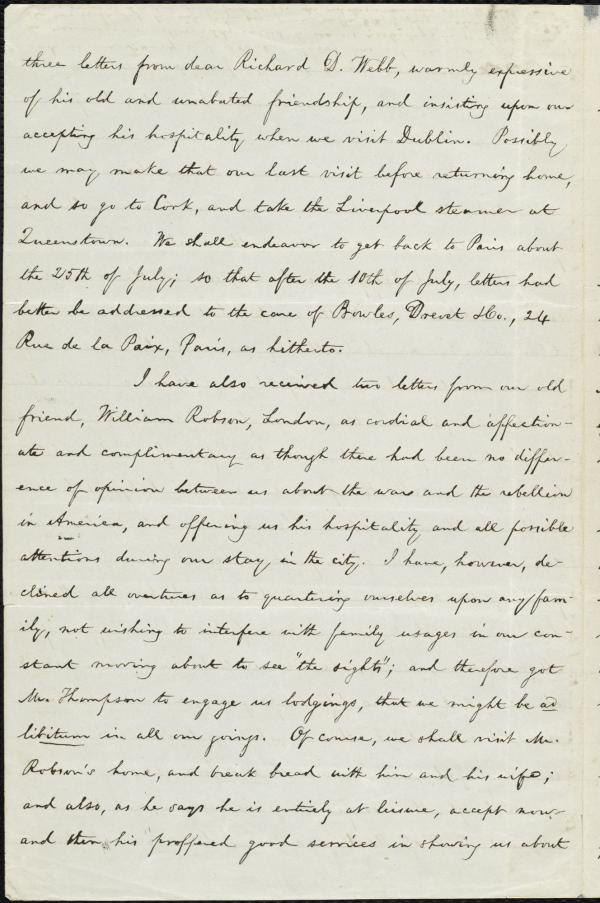 three letters from dear Richard D. Webb, warmly expressive
of his old and unabated friendship, and insisting upon our
accepting his hospitality when we visit Dublin. Possibly
we may make that our last visit before returning home,
and so go to Cork, and take the Liverpool steamer at
Queenstown. We shall endeavor to get back to Paris about
the 25th of July; so that after the 10th of July, letters had
better be addressed to the care of Bowles, Drevet & Co., 24
Rue de la Paix, Paris, as hitherto.
I have also received two letters from our old
friend, William Robson, London, as cordial and affection-
ate and complimentary as though there had been no differ-
ence of opinion between us about the war and the rebellion
in America, and offering us his hospitality and all possible
attentions during our stay in the city. I have, however, de-
clined all overtures as to quartering ourselves upon any fam-
ily, not wishing to interfere with family usages in our con-
stant moving about to see "the sights"; and therefore got
Mr. Thompson to engage us lodgings, that we might be ad
libitum in all our goings. Of course, we shall visit Mr.
Robson's home, and break bread with him and his wife;
and also, as he says he is entirely at leisure, accept now
and then his proffered good services in showing us about